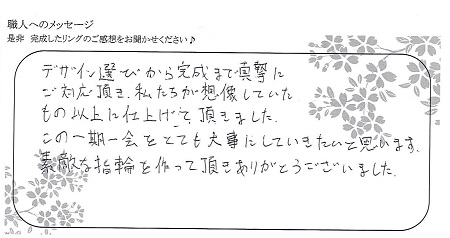 職人へのメッセージ
是非 完成したリングのご感想をお聞かせください♪
デザイン選びから完成まで真摯に
ご対応頂き、私たちが想像していた
もの以上に仕上げて頂きました。
この一期一会をとても大事にしていきたいと思います。
素敵な指輪を作って頂きありがとうございました。